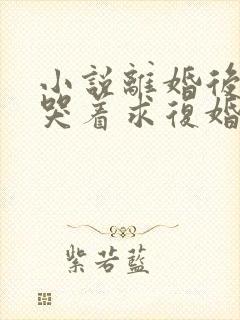 小說離婚後
哭着求復婚
紫若藍